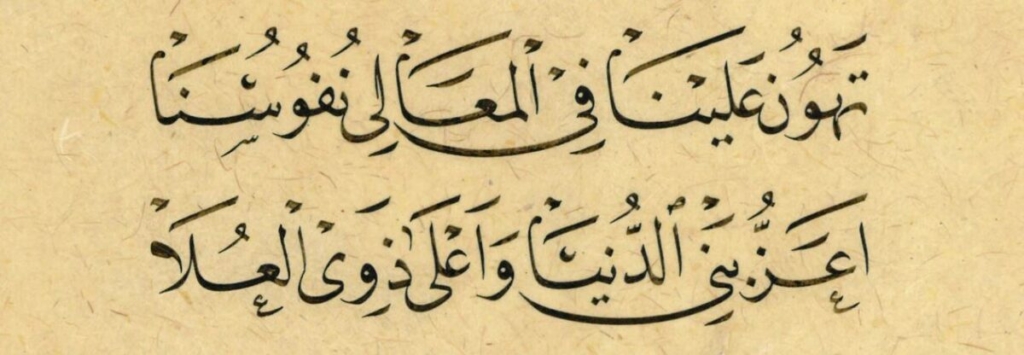 تَهُونُ عَلَيْنَا فِي الْمَعَالِي نُفُوسُنَا
اَعَزُّ بَنِي الدُّنْيَا وَاَعْلَى ذَوِي الْعُلَا